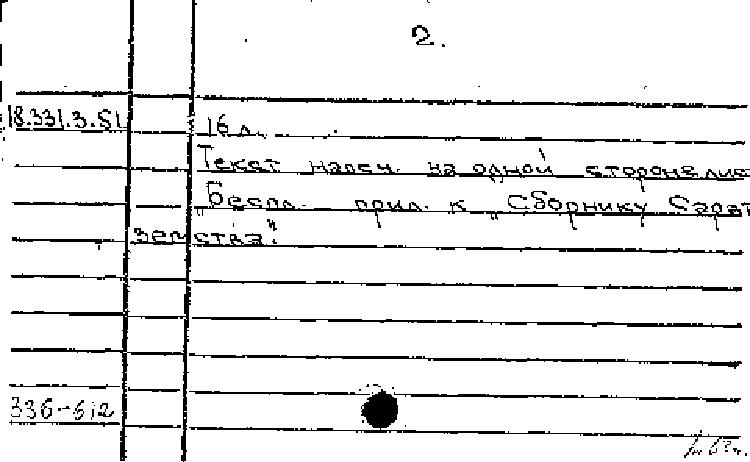 2.
18.331.3.51 16 л.
Текст напеч. на одной стороне лис
„Беспл. прил. к „Сборнику Сарат
земства".
336-612